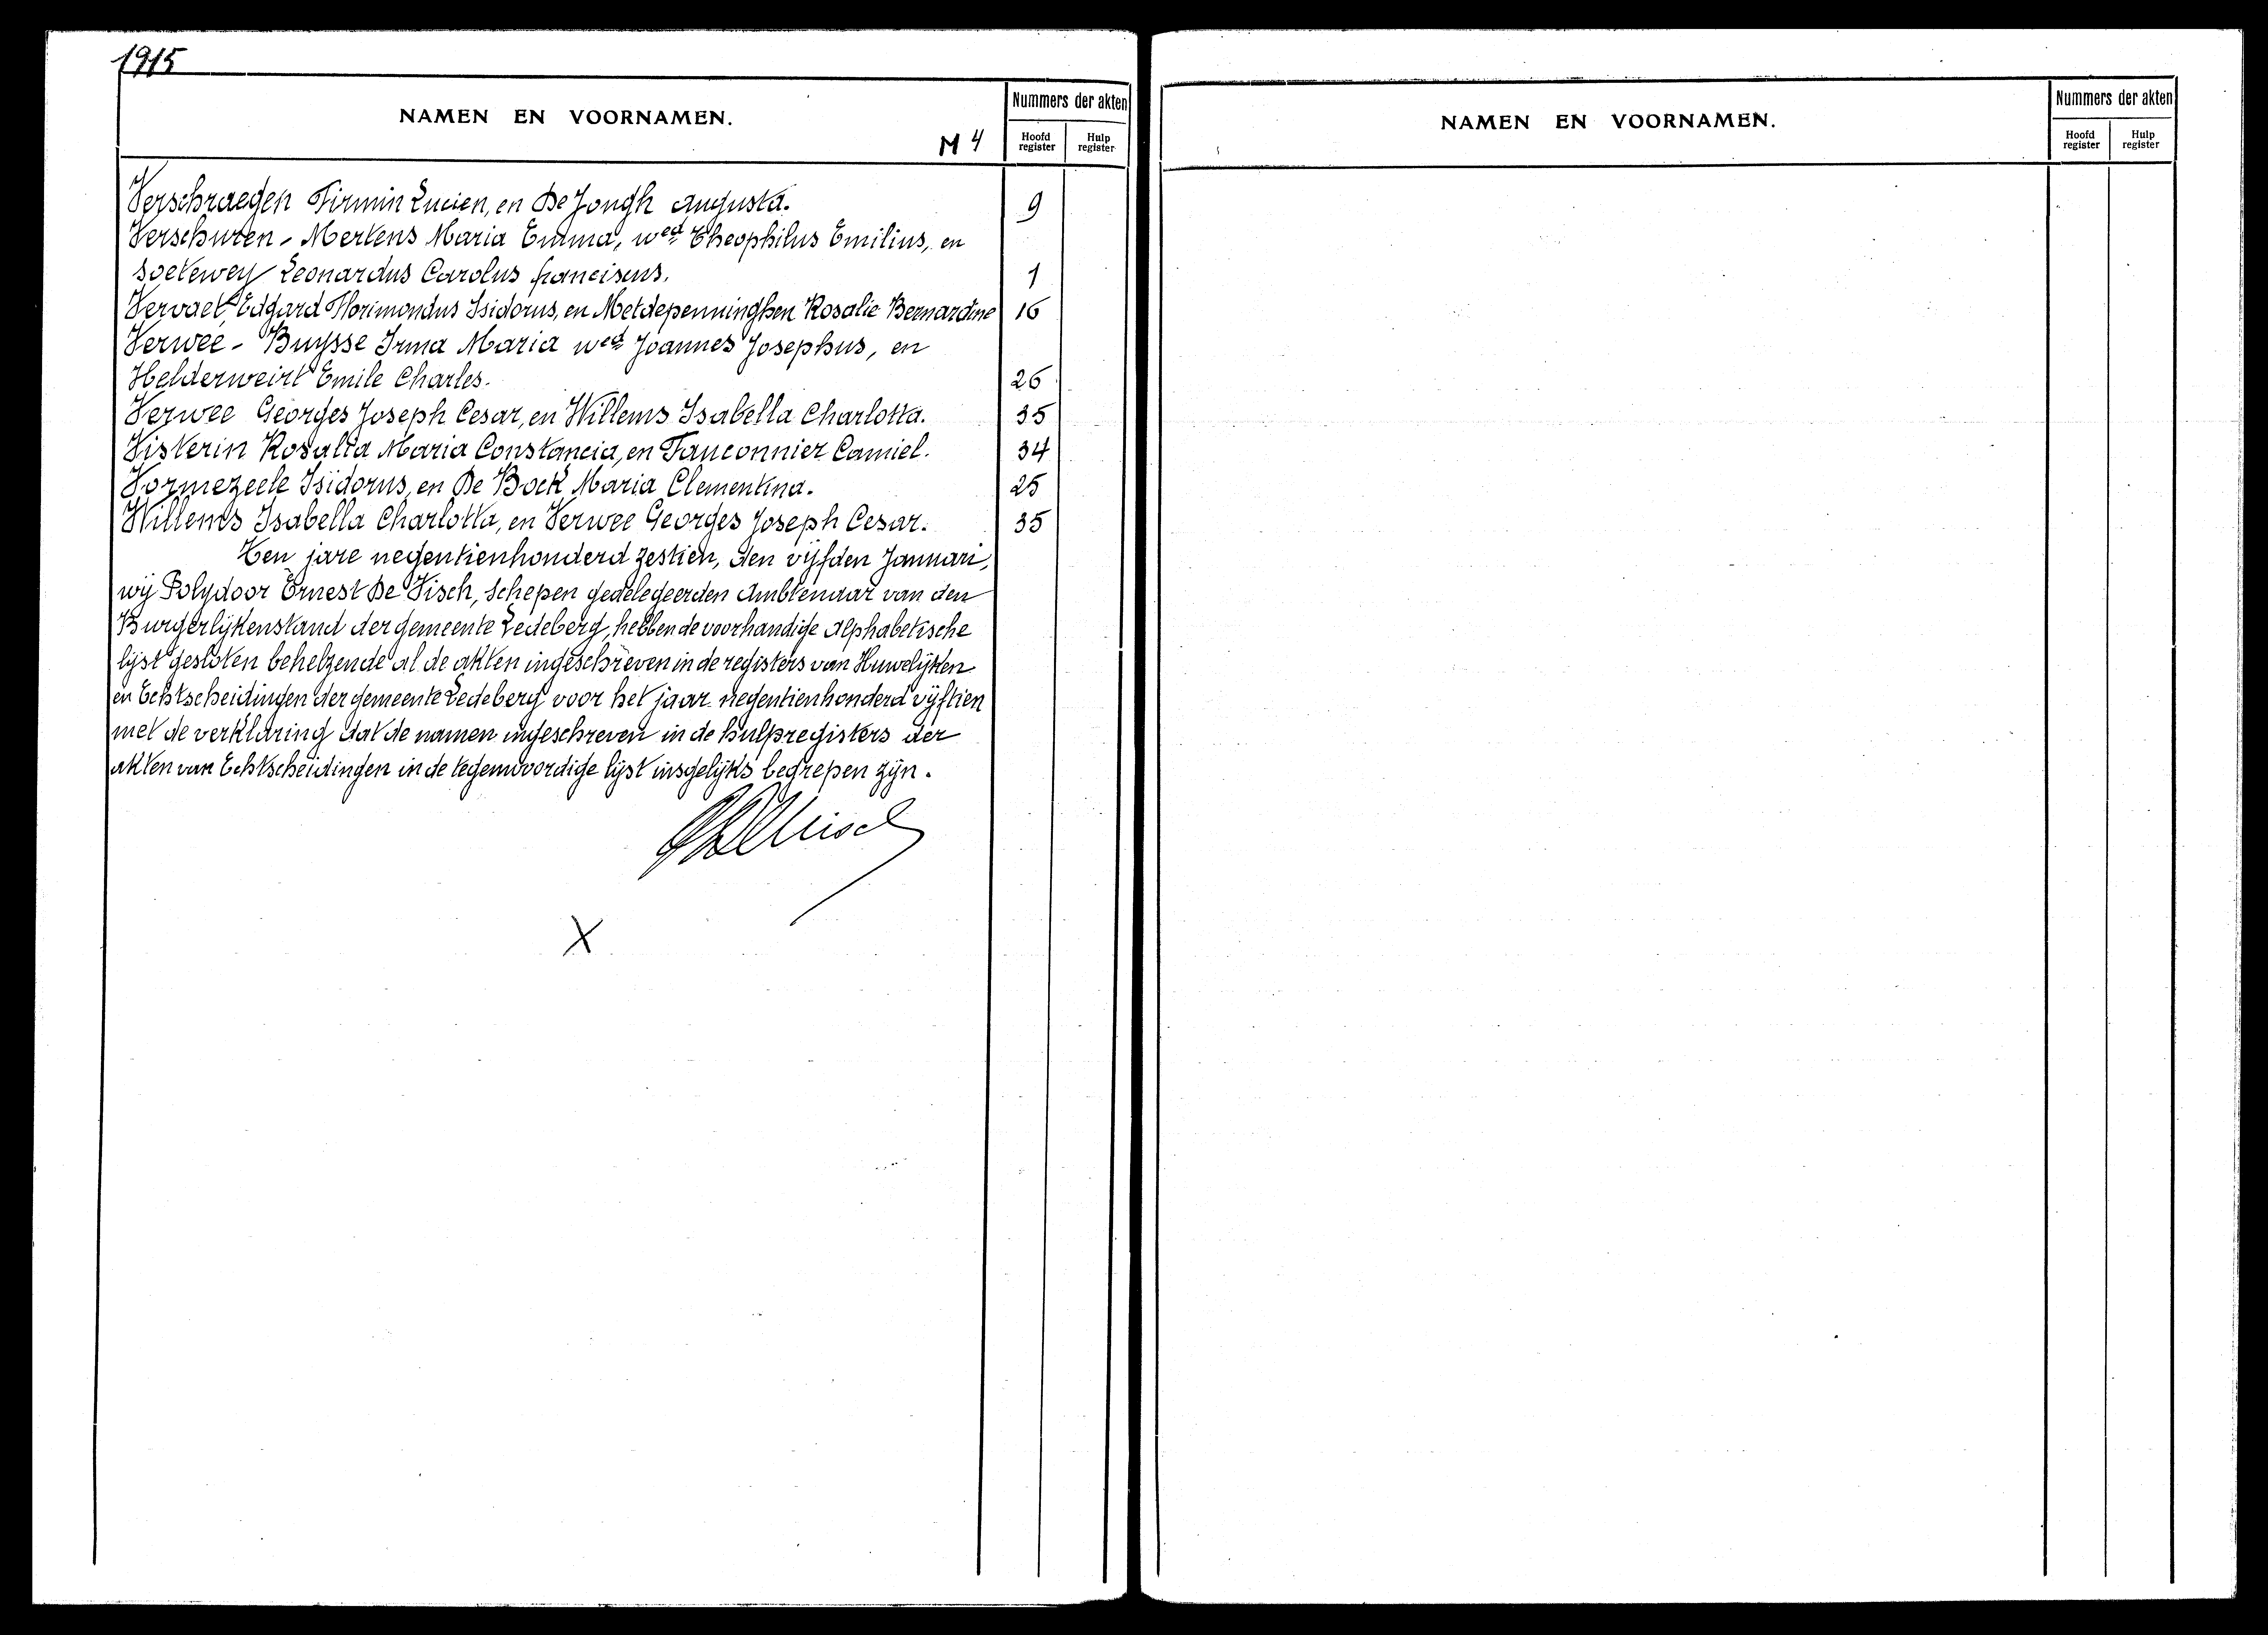 1915
NAMEN EN VOORNAMEN.
M 4
Nummers der akten
Hoofd register
Hulp register
Verschraegen Firmin Lucien, en De Jongh Augusta. 9
Verschuren - Mertens Maria Emma, wed Theophilus Emilius, en
Soetewey Leonardus Carolus franciscus. 1
Vervaet Edgard Florimondus Isidorus, en Metdepenninghen Rosalie Bernardine 16
Verwee - Buysse Irma Maria wed Joannes Josephus, en
Helderweirt Emile Charles. 26
Verwee Georges Joseph Cesar, en Willems Isabella Charlotta. 35
Visterin Rosalia Maria Constancia, en Fauconnier Camiel. 34
Vormezeele Isidorus, en De Bock Maria Clementina. 25
Willems Isabella Charlotta, en Verwee Georges Joseph Cesar. 35
Ten jare negentienhonderd zestien, den vijfden Januari,
wij Polydoor Ernest De Visch, Schepen gedelegeerden Ambtenaar van den
Burgerlijkenstand der gemeente Ledeberg, hebben de voorhandige alphabetische
lijst gesloten behelzende al de akten ingeschreven in de registers van Huwelijken
en Echtscheidingen der gemeente Ledeberg voor het jaar negentienhonderd vijftien
met de verklaring dat de namen ingeschreven in de hulpregisters der
akten van Echtscheidingen in de tegenwoordige lijst insgelijks begrepen zijn.
X
NAMEN EN VOORNAMEN.
Nummers der akten
Hoofd register
Hulp register